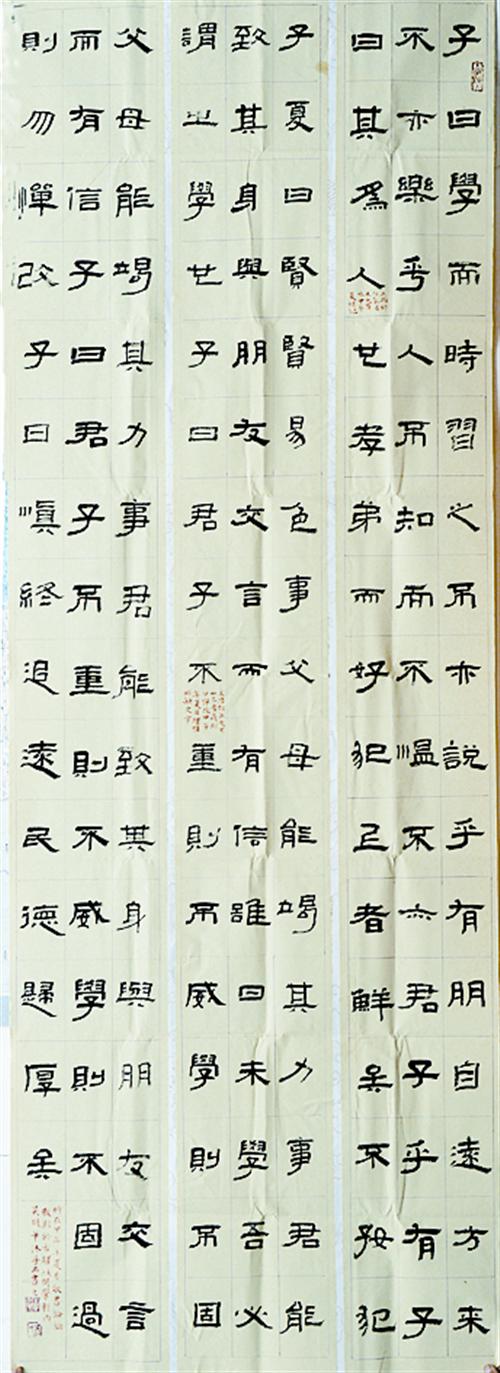 子曰學而時習之不亦說乎有朋自遠方來
不亦樂乎人不知而不慍不亦君子乎有子
曰其爲人也孝弟而好犯上者鮮矣不好犯
子夏曰賢賢易色事父母能竭其力事君能
致其身與朋友交言而有信雖曰未學吾必
謂之學也子曰君子不重則不威學則不固
父母能竭其力事君能致其身與朋友交言
而有信子曰君子不重則不威學則不固過
則勿憚改子曰愼終追遠民德歸厚矣